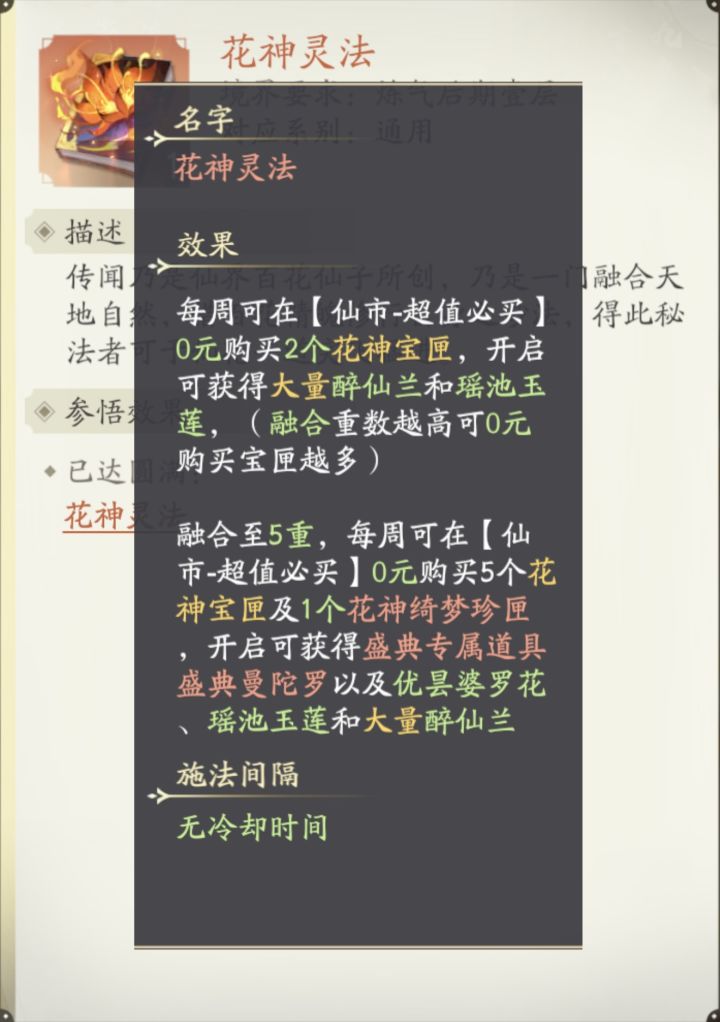 花神灵法
境界要求：炼气后期壹层
对应系别：通用
名字
花神灵法
描述
效果
传闻乃是仙界百花仙子所创，乃是一门融合天
地自然，
法，得此秘
法者可
每周可在【仙市-超值必买】
0元购买2个花神宝匣，开启
可获得大量醉仙兰和瑶池玉
莲，（融合重数越高可0元
购买宝匣越多）
参悟效果
已达圆满：
花神灵法
融合至5重，每周可在【仙
市-超值必买】0元购买5个花
神宝匣及1个花神绮梦珍匣
，开启可获得盛典专属道具
盛典曼陀罗以及优昙婆罗花
、瑶池玉莲和大量醉仙兰
施法间隔
无冷却时间